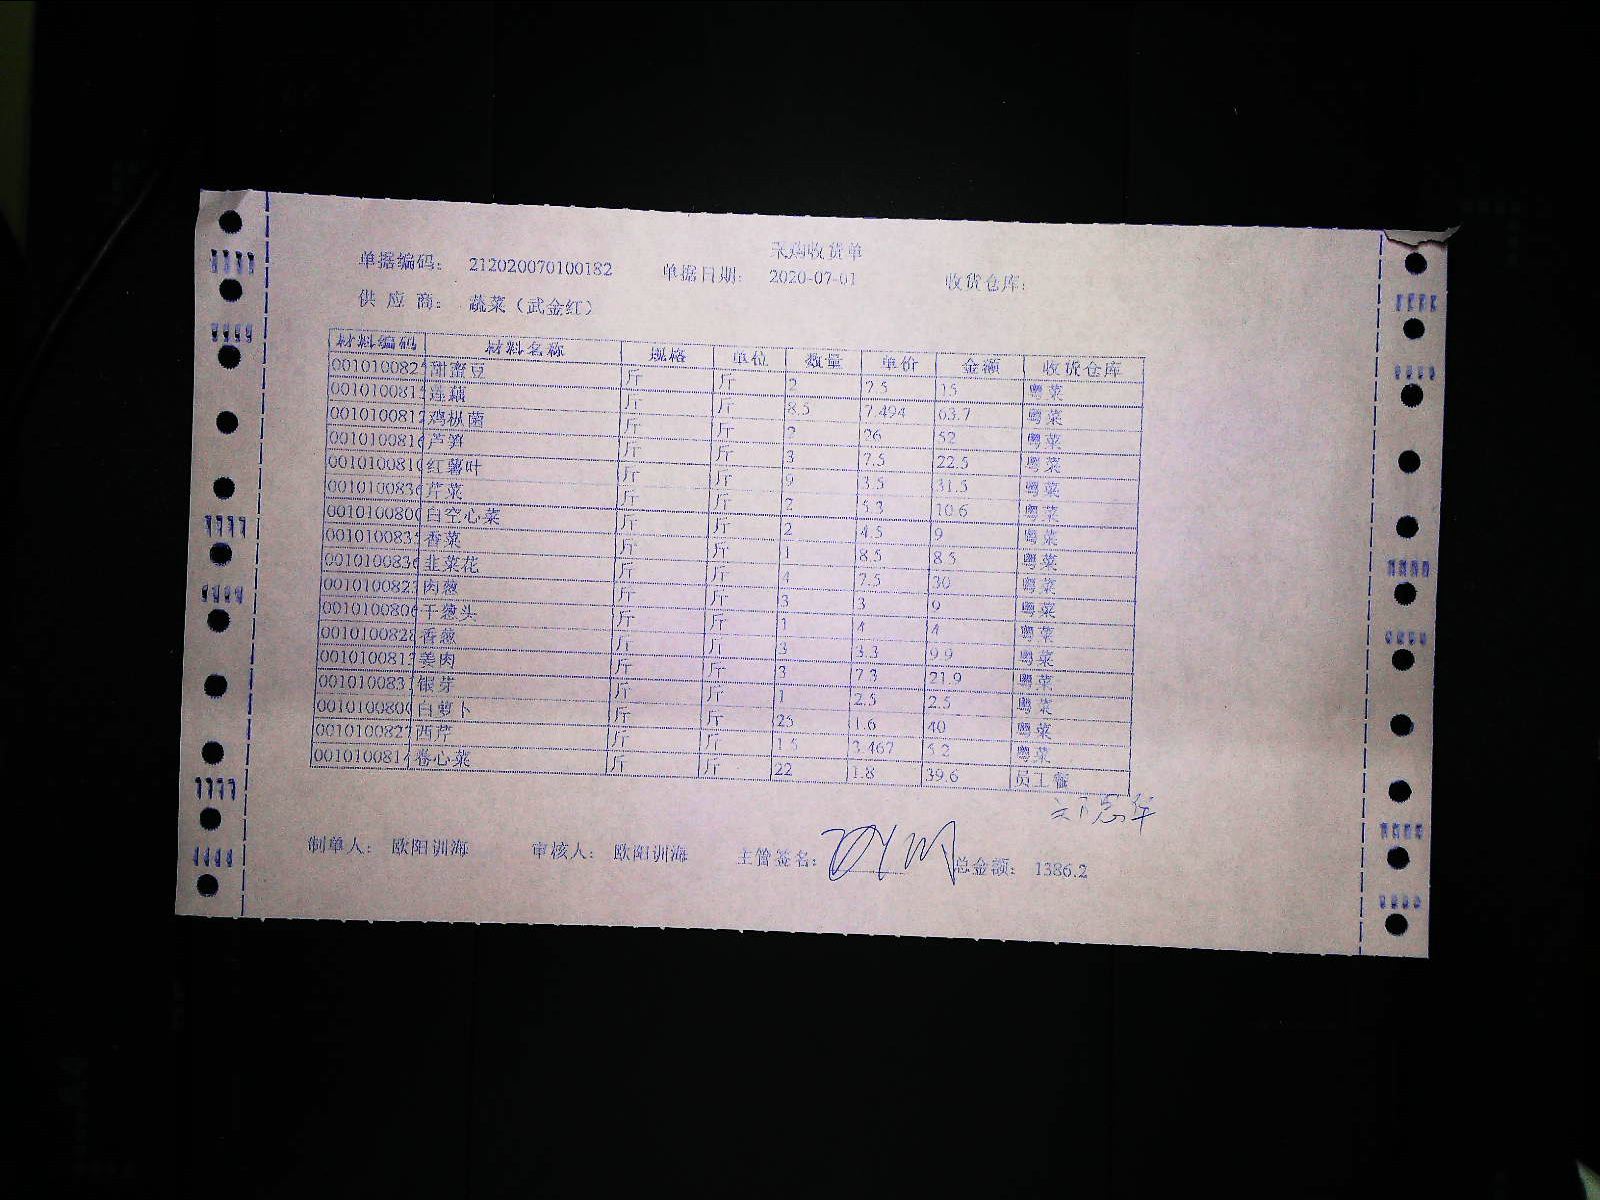 采购收货单
单据编码： 212020070100182 单据日期： 2020-07-01 收货仓库：
供 应 商： 蔬菜（武金红）
材料编码 材料名称 规格 单位 数量 单价 金额 收货仓库
001010082 甜蜜豆 斤 斤 2 7.5 15 粤菜
001010081 莲藕 斤 斤 8.5 7.494 63.7 粤菜
001010081 鸡枞菌 斤 斤 2 26 52 粤菜
001010081 芦笋 斤 斤 3 7.5 22.5 粤菜
001010081 红薯叶 斤 斤 9 3.5 31.5 粤菜
001010083 芹菜 斤 斤 2 5.3 10.6 粤菜
001010080 白空心菜 斤 斤 2 4.5 9 粤菜
001010083 香菜 斤 斤 1 8.5 8.5 粤菜
001010083 韭菜花 斤 斤 4 7.5 30 粤菜
001010082 肉葱 斤 斤 3 3 9 粤菜
001010080 干葱头 斤 斤 1 4 4 粤菜
001010082 香葱 斤 斤 3 3.3 9.9 粤菜
001010081 姜肉 斤 斤 3 7.3 21.9 粤菜
001010083 银芽 斤 斤 1 2.5 2.5 粤菜
001010080 白萝卜 斤 斤 25 1.6 40 粤菜
001010082 西芹 斤 斤 1.5 3.467 5.2 粤菜
001010081 卷心菜 斤 斤 22 1.8 39.6 员工餐
制单人： 欧阳训海 审核人： 欧阳训海 主管签名： 总金额： 1386.2